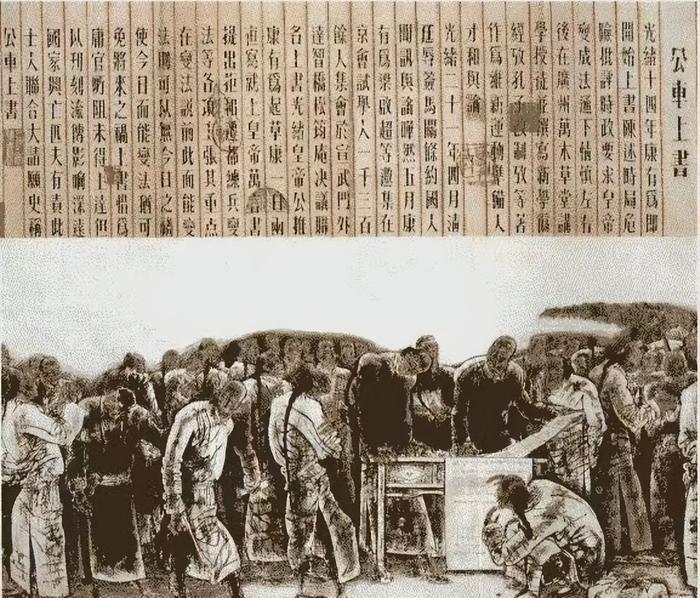 公車上書
光緒十四年康有爲即
開始上書陳述時局危
險批評時政要求皇帝
變成法通下情慎左右
後在廣州萬木草堂講
學授徒並撰寫新學僞
經攷孔子改制攷等著
作爲維新運動準備人
才和輿論
光緒二十一年四月清
廷辱簽馬關條約國人
聞訊輿論嘩然五月康
有爲梁啟超等邀集在
京會試舉人一千三百
餘人集會於宣武門外
達智橋松筠庵决議聯
名上書光緒皇帝公推
康有爲起草康一日兩
夜寫就上皇帝萬言書
提出拒和遷都練兵變
法等各項主張其重点
在變法説前此而能變
法則可以無今日之禍
使今日而能變法猶可
免將來之禍上書惜爲
庸官所阻未得上達但
以刊刻流傳影响深遠
國家興亡匹夫有責此
士人聯合大請願史稱
公車上書